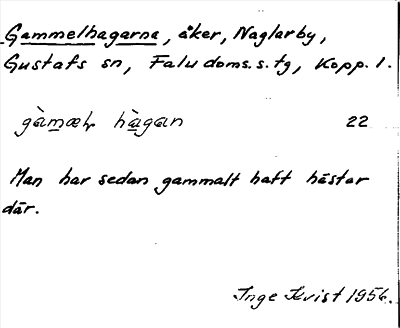 Gammelhagarna, åker, Naglarby,
Gustafs sn, Falu doms.s.tg, Kopp. l.
gàmæɫ hàgan 22
Man har sedan gammalt haft hästar
där.
Inge Kvist 1956.